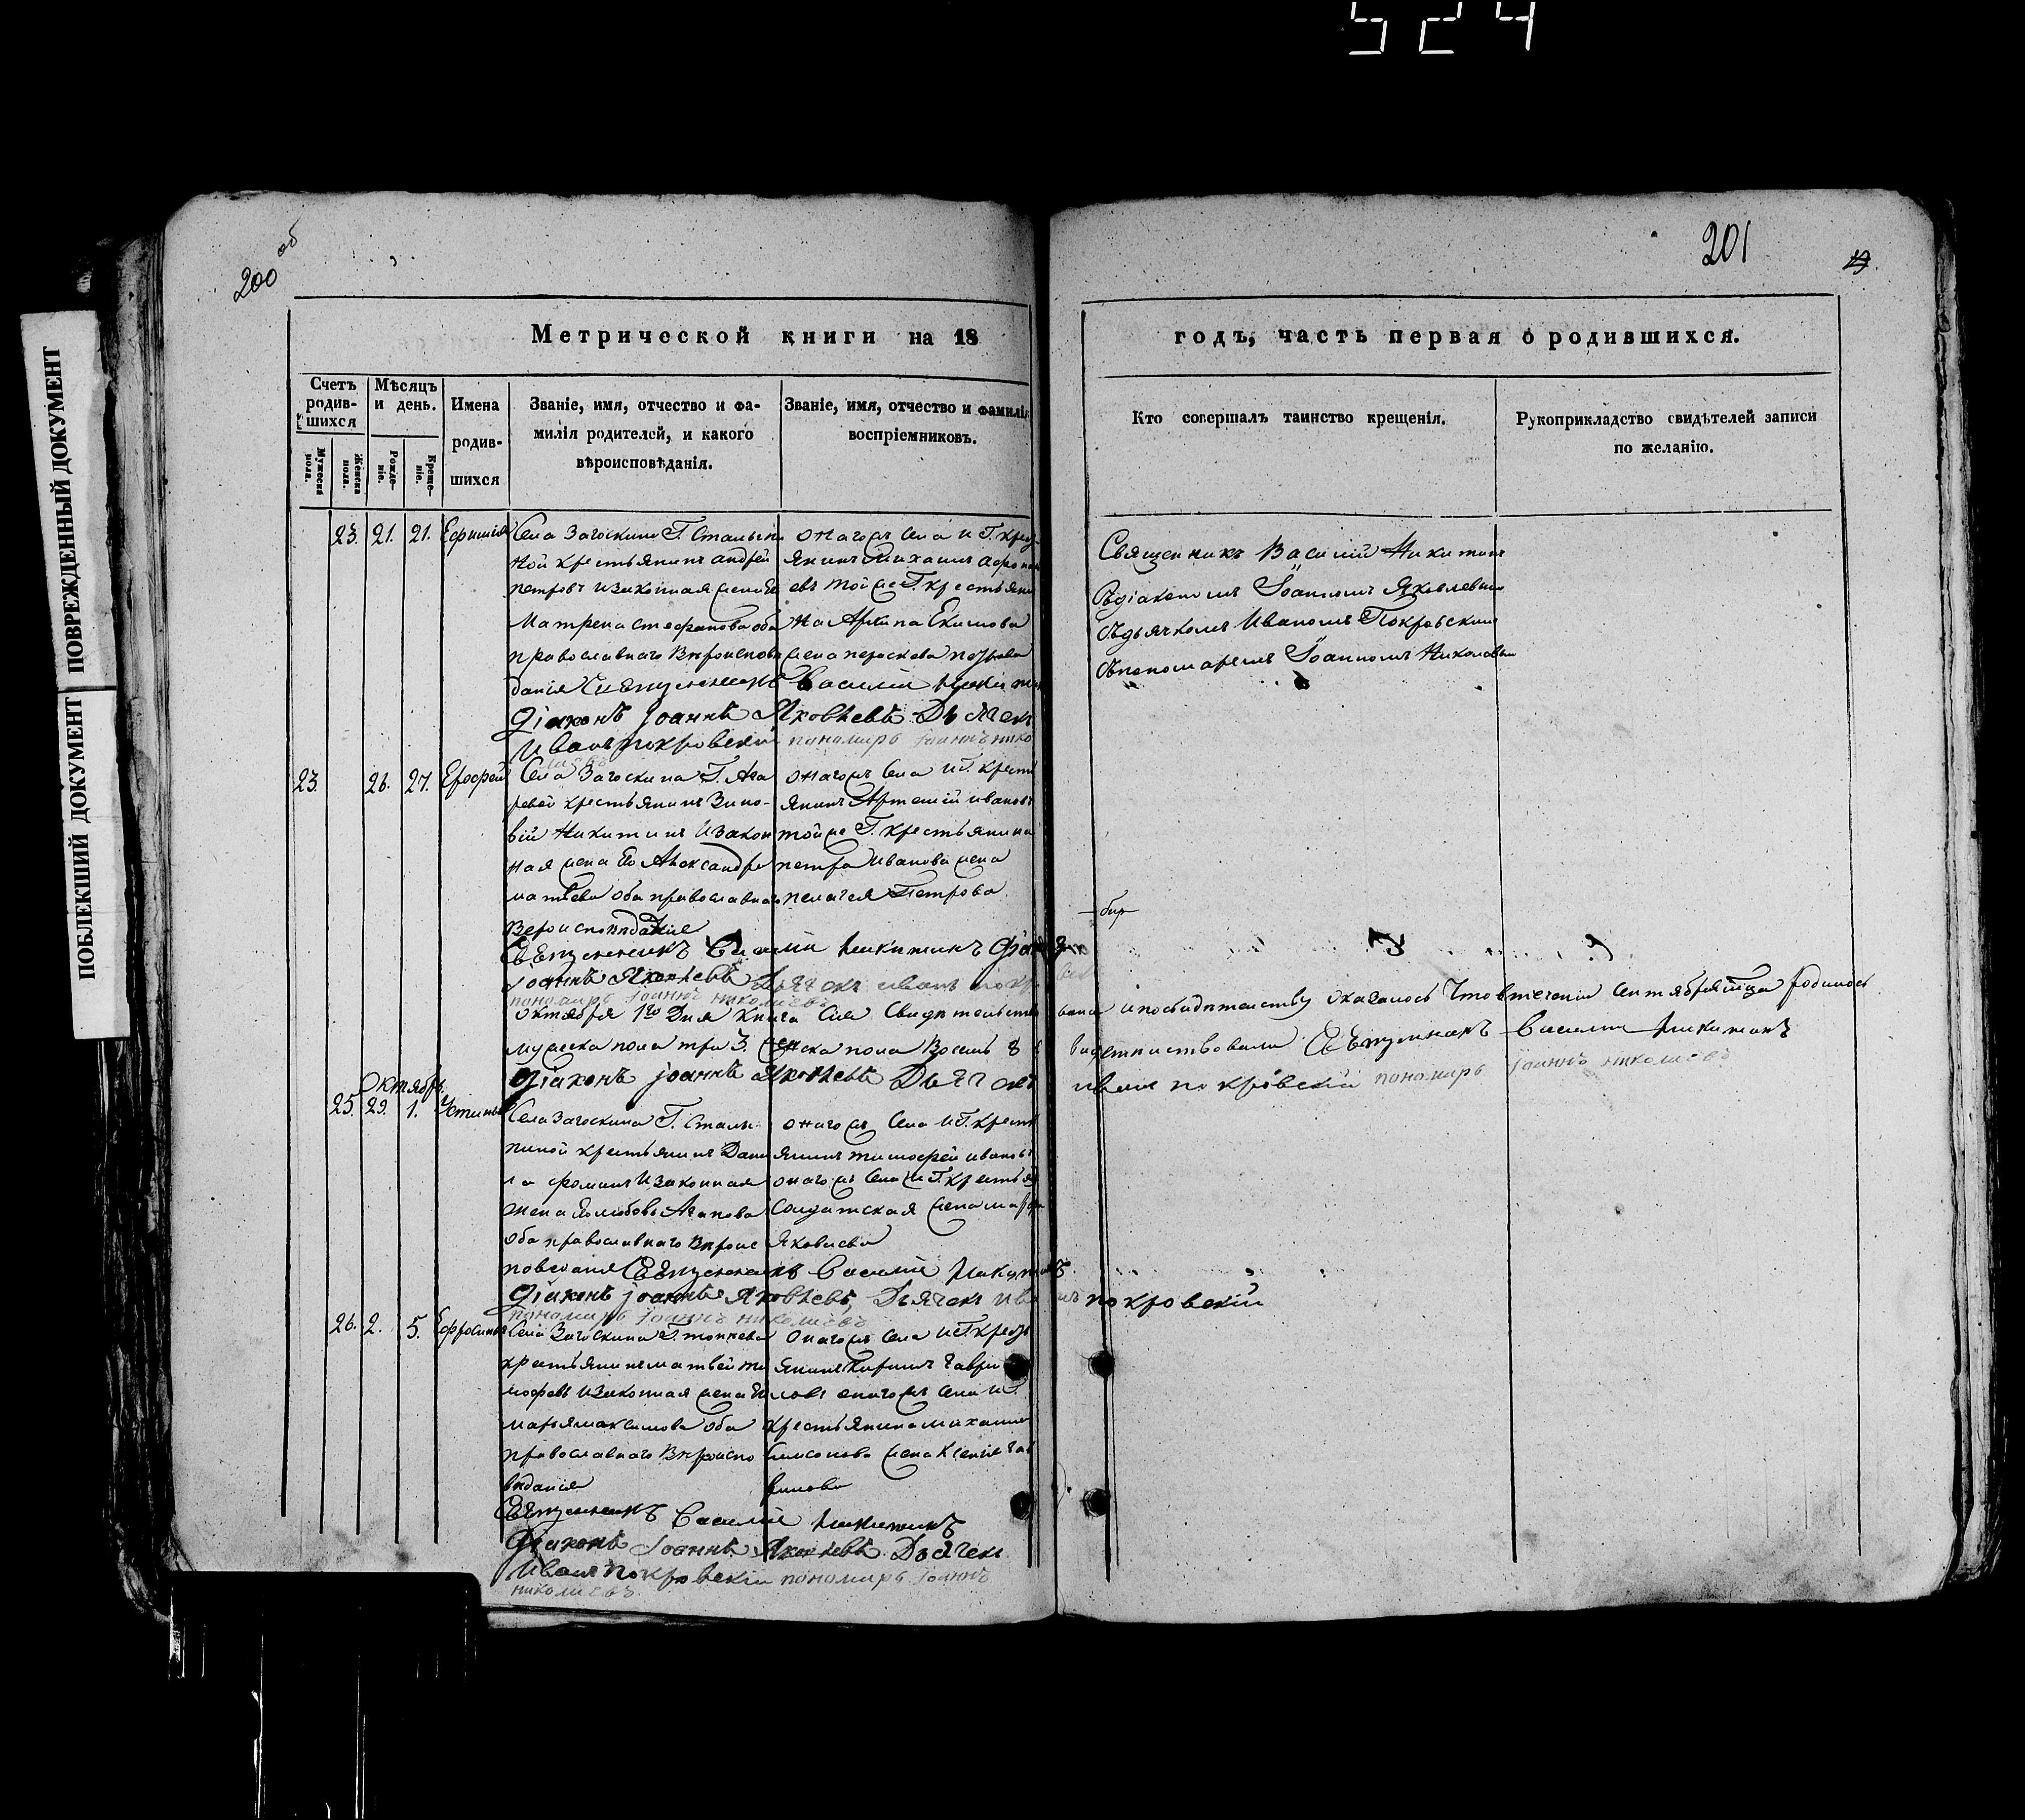 524
200 об
201
19
ПОВРЕЖДЕННЫЙ ДОКУМЕНТ
ПОБЛЕКШИЙ ДОКУМЕНТ
Метрической книги на 18
годъ, часть первая о родившихся.
Счетъ родив-шихся
Мужеска пола.
Женска пола.
Мѣсяцъ и день.
Рожде-ніе.
Креще-ніе.
Имена родив-шихся
Званіе, имя, отчество и фа-
милія родителей, и какого
вѣроисповѣданія.
Званіе, имя, отчество и фамилія
воспріемниковъ.
Кто совершалъ таинство крещенія.
Рукоприкладство свидѣтелей записи
по желанію.
23. 21. 21.
Села Загоскина Г.
ной крестьянинъ андрей
петровъ изаконная жена Ее
Матрена Стефанова оба
православнаго Вѣроиспове
данія Священникъ Василій Никитинъ
Діаконъ Іоаннъ Яковлевъ Дьячекъ
Иванъ покровскій пономарь Іоаннъ нико
лаевъ
онагожъ Села и Г. крест
янинъ Михаилъ
евъ тойже Г. крестьяни
на Архипа Екимова
жена параскева петрова
Священникъ Василій Никитинъ
Съдіакономъ Іоанномъ Яковлевымъ
Съдьячкомъ Иваномъ Покровскимъ
Съпономаремъ Іоанномъ Николаевым
23. 26. 27. Ерофей
Села Загоскина Г. Ага
ревой крестьянинъ Зино-
вій Никитинъ Изакон
ная жена Его Александра
матвева оба православнаго
Вероисповѣданіе
онагожъ Села иГ. крест
янинъ Артемій ивановъ
тойже Г. крестьянина
петра Иванова жена
пелагея Петрова
Священникъ Василій Никитинъ Діаконъ
Іоаннъ Яковлевъ Дьячекъ иванъ покро
пономарь Іоаннъ николаевъ
Октября 1го Дня Книга Сия Свидѣтельство вана ипосвидѣтельству оказалось Что втечении Сентября мца родилось
мужеска пола три 3. женска пола Восемь 8 Священникъ Василій Никитинъ
Діаконъ Іоаннъ Яковлевъ Дьячекъ иванъ покровскій пономарь Іоаннъ николаевъ
Октябрь.
25. 29. 1. Устинья
Села Загоскина Г. Столы-
пиной крестьянинъ Дани
ла фоминъ Изаконная
жена Его любовь Агапова
оба православнаго Вѣроис
поведания Священникъ Василій Никитинъ
онагожъ Села иГ. крест
янинъ тимофей ивановъ
онагожъ Села иГ. крестья
Солдатская жена марфа
Яковлева
Діаконъ Іоаннъ Яковлевъ, Дьячекъ иванъ покровскій
пономарь Іоаннъ николаевъ
26. 2. 5. Ефросинья
Села Загоскина Г.
крестьянинъ матвей ти
мофевъ изаконная жена Ее
марья максимова оба
православнаго Вѣроиспо
вѣдания
онагожъ Села иГ. крест
янинъ Кирилъ Гаври
ловъ онагожъ Села иГ.
крестьянина михаила
жена Ксения Гав
рилова
Священникъ Василій Никитинъ
Діаконъ Іоаннъ Яковлевъ Дьячекъ
Иванъ покровскій пономарь Іоаннъ
николаевъ